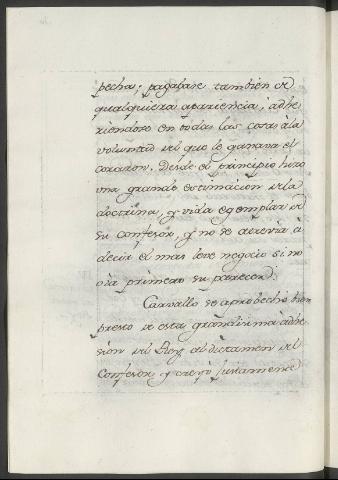 pecha; pagabase tambien de
qualquiera apariencia, adhe
riendose en todas las cosas à la
voluntad del que le ganava el
corazon. Desde el principio hizo
una grande estimacion de la
doctrina, y vida egemplar de
su confesor, y no se atrevia à
decir el mas leve negocio si no
oìa primero su parecer.
Carvallo se aprobechò bien
presto de esta grandisima adhe
sion del Rey al dictamen del
Confesor, y creyò justamente